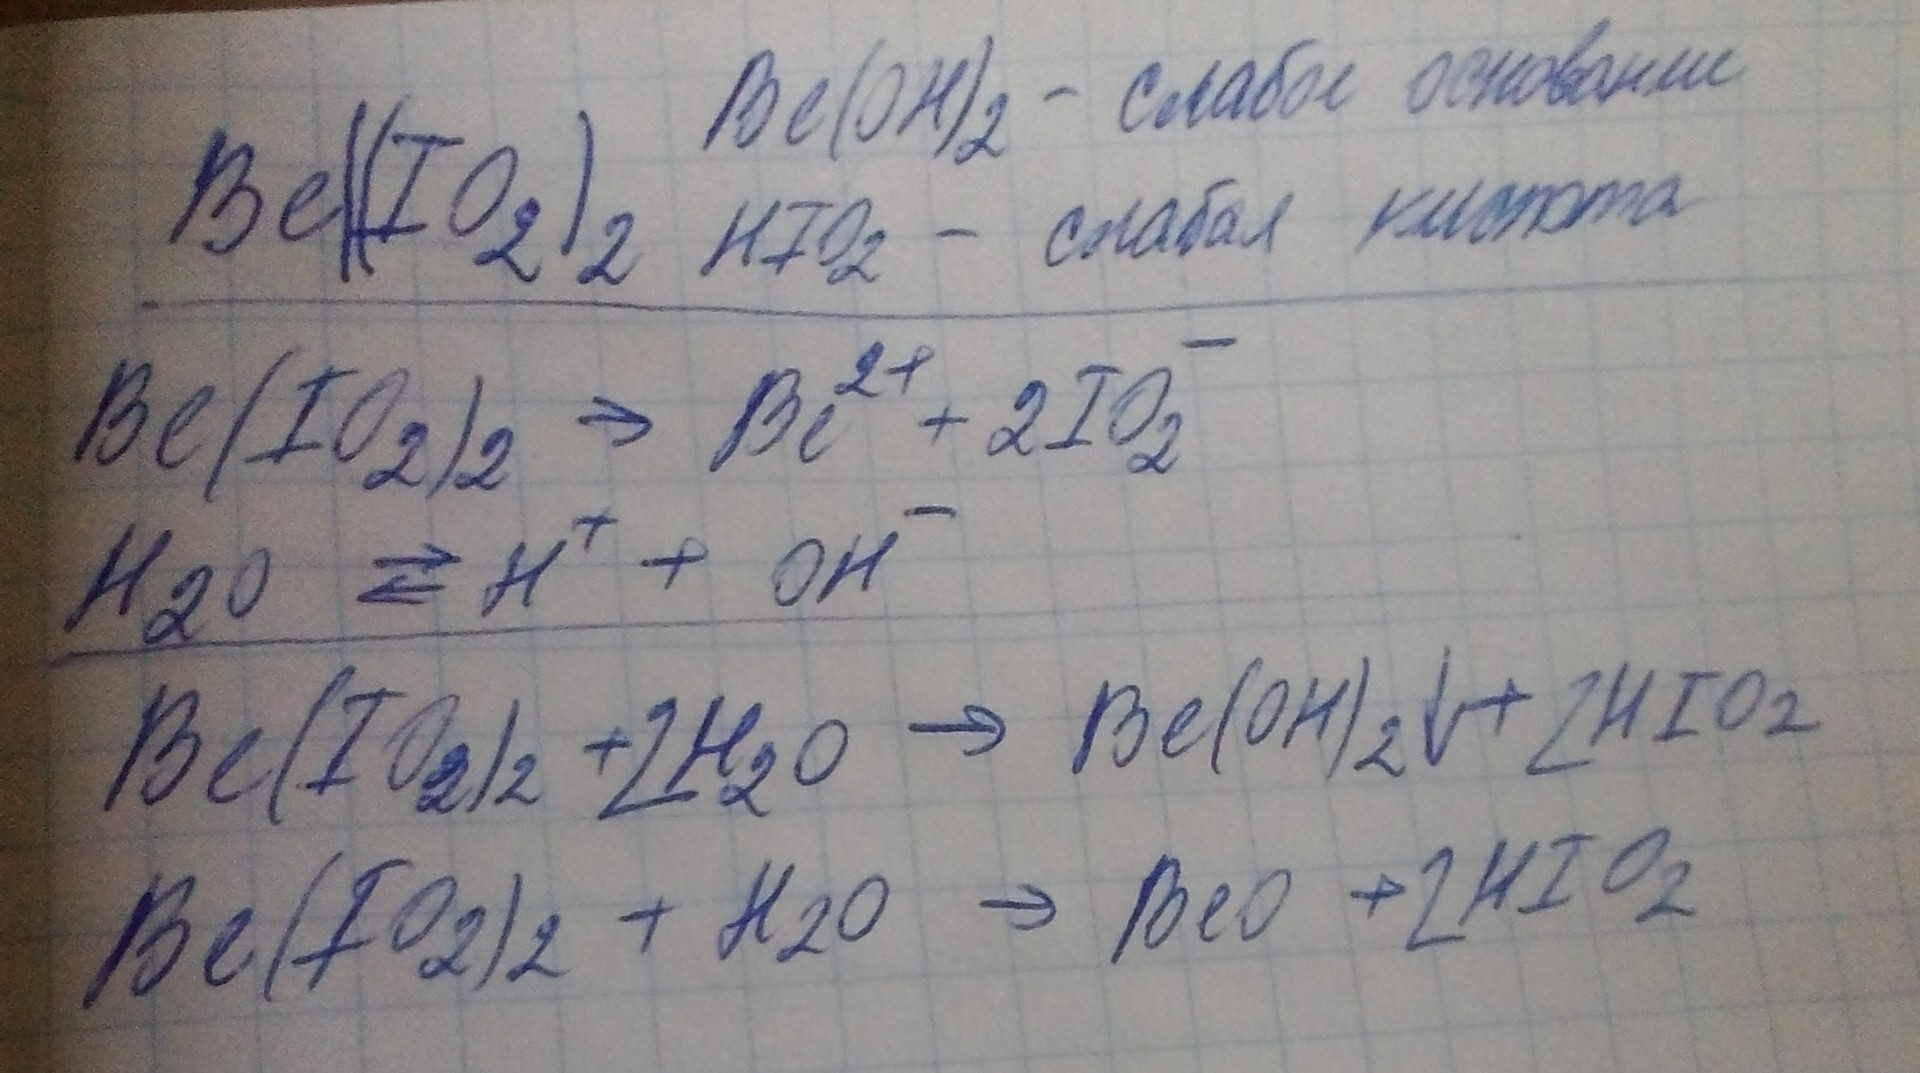 Be(OH)₂ - слабое основание
Be((IO₂)₂ HIO₂ - слабая кислота
Be(IO₂)₂ → Be²⁺ + 2IO₂⁻
H₂O ⇄ H⁺ + OH⁻
Be(IO₂)₂ + 2H₂O → Be(OH)₂↓ + 2HIO₂
Be(IO₂)₂ + H₂O → BeO + 2HIO₂